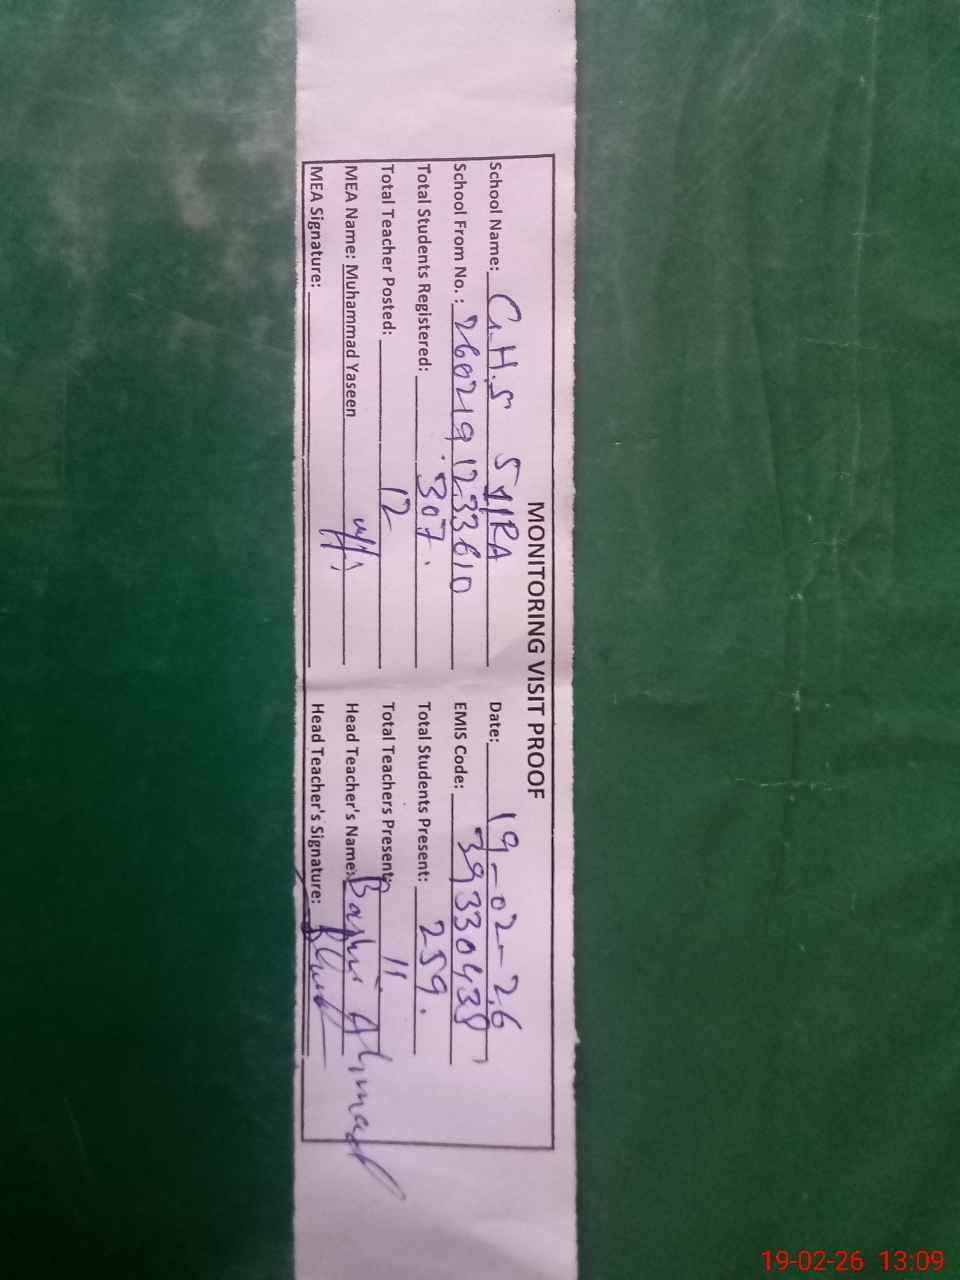 MONITORING VISIT PROOF
School Name: G.H.S 511RA Date: 19-02-26
School From No.: 2602191233610 EMIS Code: 39330438
Total Students Registered: 307. Total Students Present: 259.
Total Teacher Posted: 12 Total Teachers Present: 11
MEA Name: Muhammad Yaseen Head Teacher's Name: Bashir Ahmad
MEA Signature: Head Teacher's Signature:
19-02-26 13:09